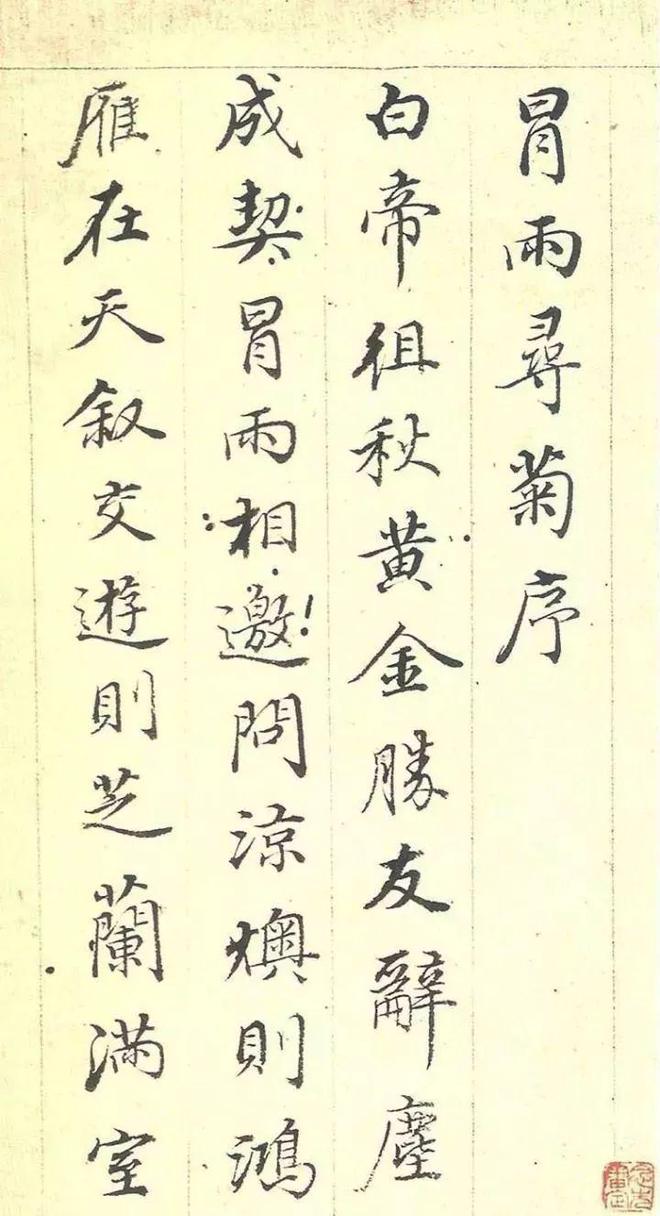 冒雨尋菊序
白帝徂秋黄金勝友辭塵
成契冒雨相邀問涼燠則鴻
雁在天叙交遊則芝蘭满室